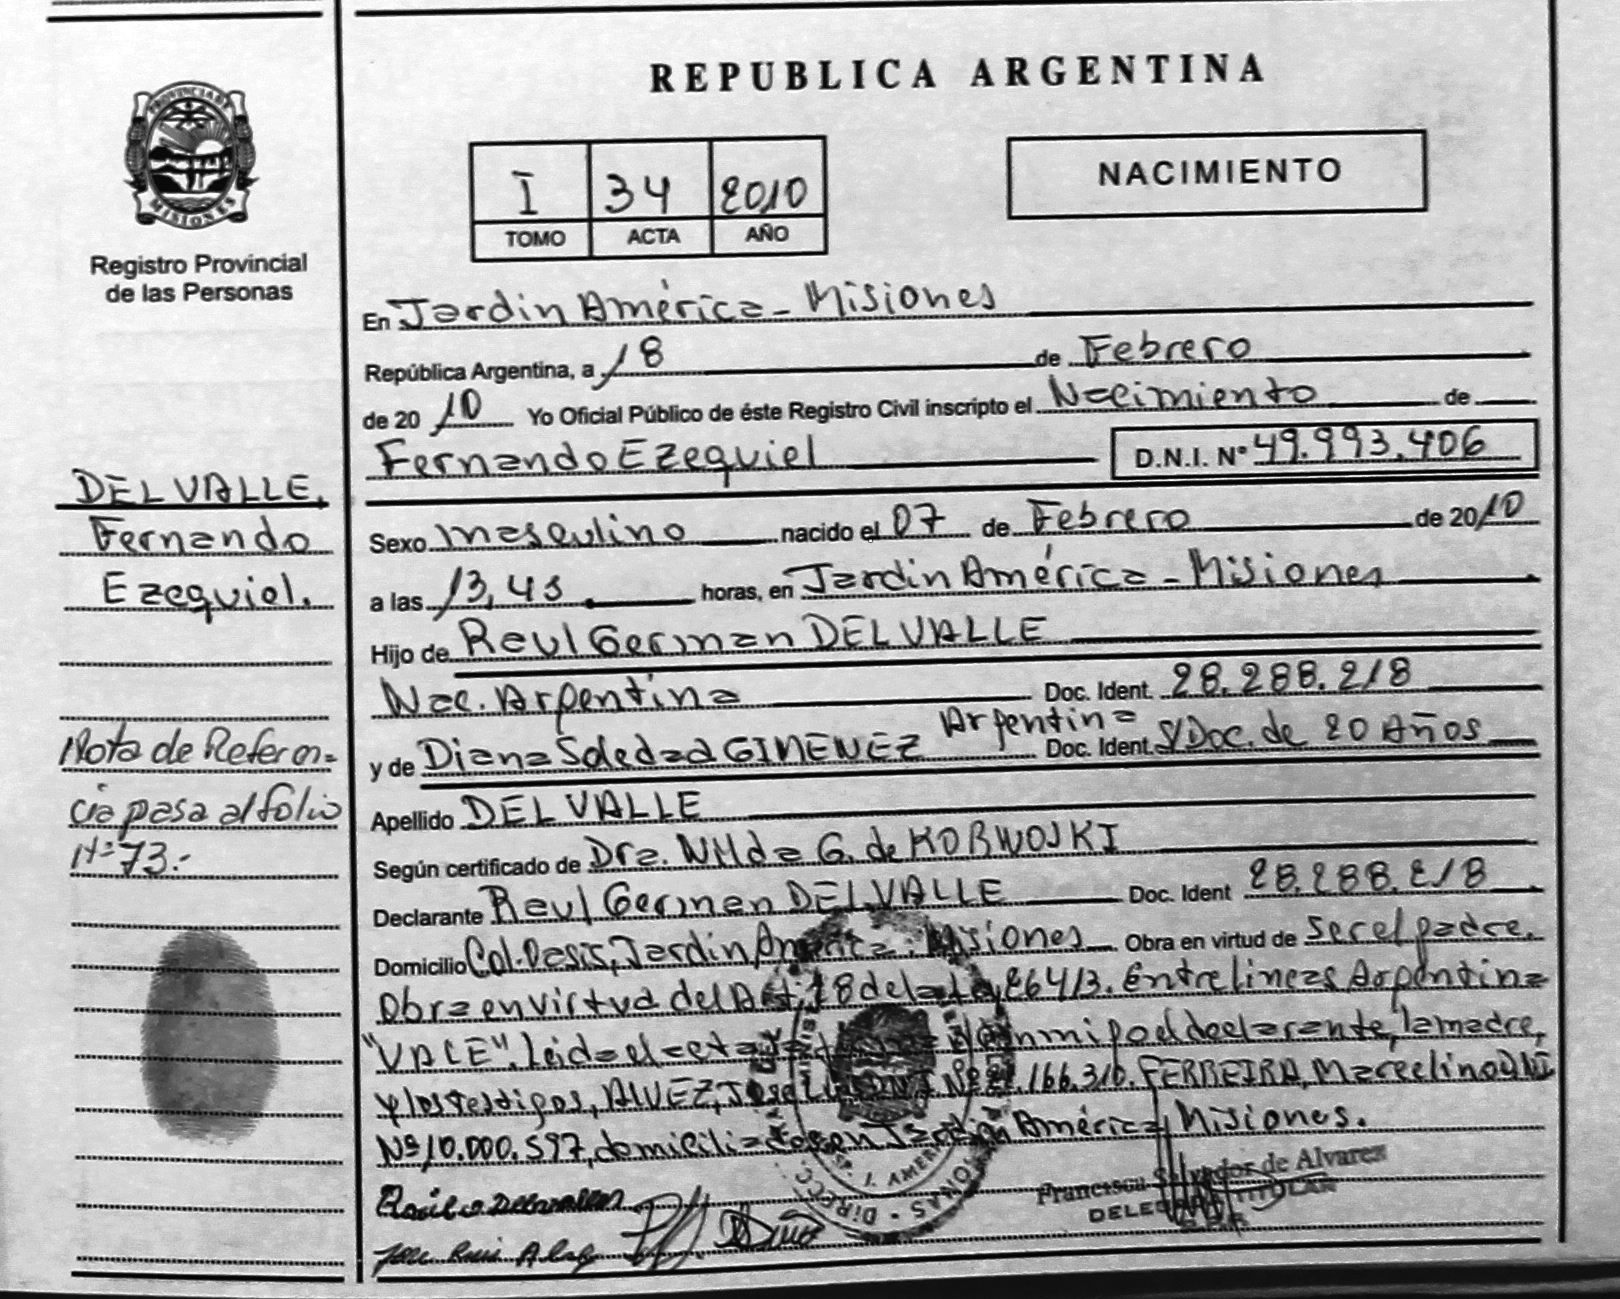 REPUBLICA ARGENTINA
PROVINCIA DE
MISIONES
Registro Provincial
de las Personas
I 34 2010
TOMO ACTA AÑO
NACIMIENTO
En Jardin América - Misiones
República Argentina, a 18 de Febrero
de 20 10 Yo Oficial Público de éste Registro Civil inscripto el Nacimiento de
Fernando Ezequiel D.N.I. N° 49.993.406
Sexo masculino nacido el 07 de Febrero de 20 10
a las 13,45 horas, en Jardin América - Misiones
Hijo de Raul German DEL VALLE
Nac. Argentina Doc. Ident. 28.288.218
Argentina
y de Diana Soledad GIMENEZ Doc. Ident. S/Doc. de 20 Años
Apellido DEL VALLE
Según certificado de Dra. Nilda G. de KORWOJKI
Declarante Raul German DEL VALLE Doc. Ident 28.288.218
Domicilio Col. Oasis, Jardin América - Misiones Obra en virtud de ser el padre.
Obra en virtud del Art. 28 de la 26413. Entre lineas Argentina
"VALE". Leida el acta la conmigo el declarante, la madre,
y los testigos, ALVEZ, Jose DNI Nº 166.310. FERREIRA, Marcelino DNI
Nº 10.000.597, domiciliados en Jardin América, Misiones.
Francisca Salvador de Alvarez
TITULAR
DEL VALLE,
Fernando
Ezequiel.
Nota de Referen=
cia pasa al folio
Nº 73.-